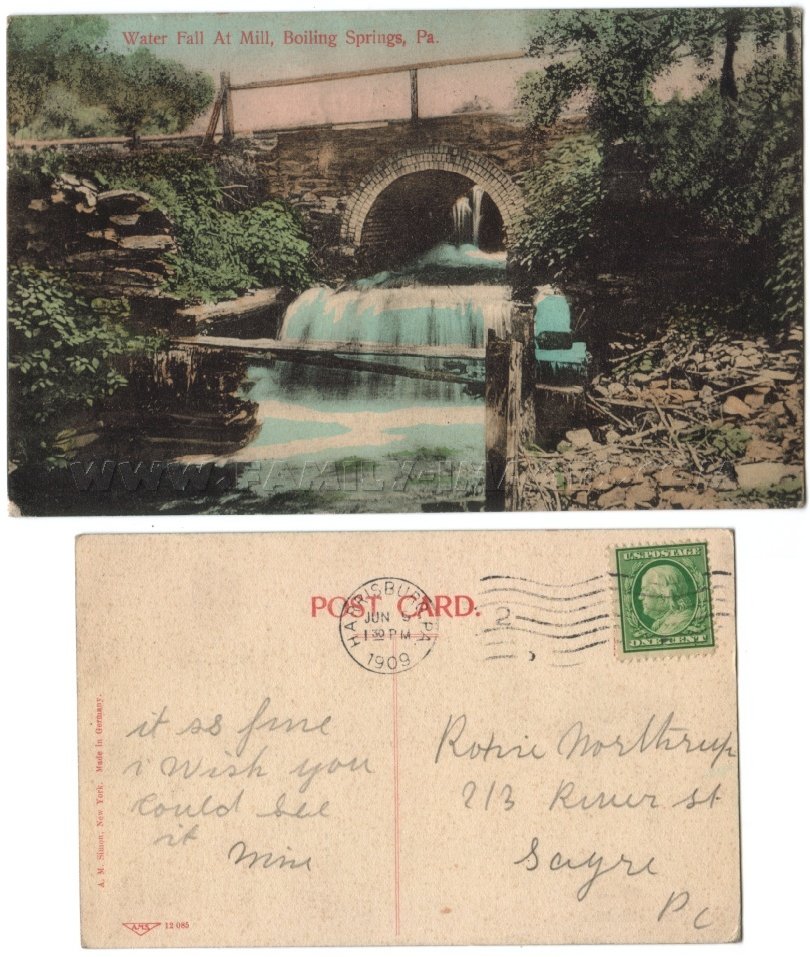 Water Fall At Mill, Boiling Springs, Pa.
WWW.FAMILY-IM
POST CARD.
HARRISBURG, PA.
JUN 5
1 30 PM
1909
2
U.S. POSTAGE
ONE CENT
it is fine
i Wish you
could see
it
Mine
Roxie Northrup
213 River st
Sayre
Pa
A. M. Simon, New York. Made in Germany.
AMS 12 085